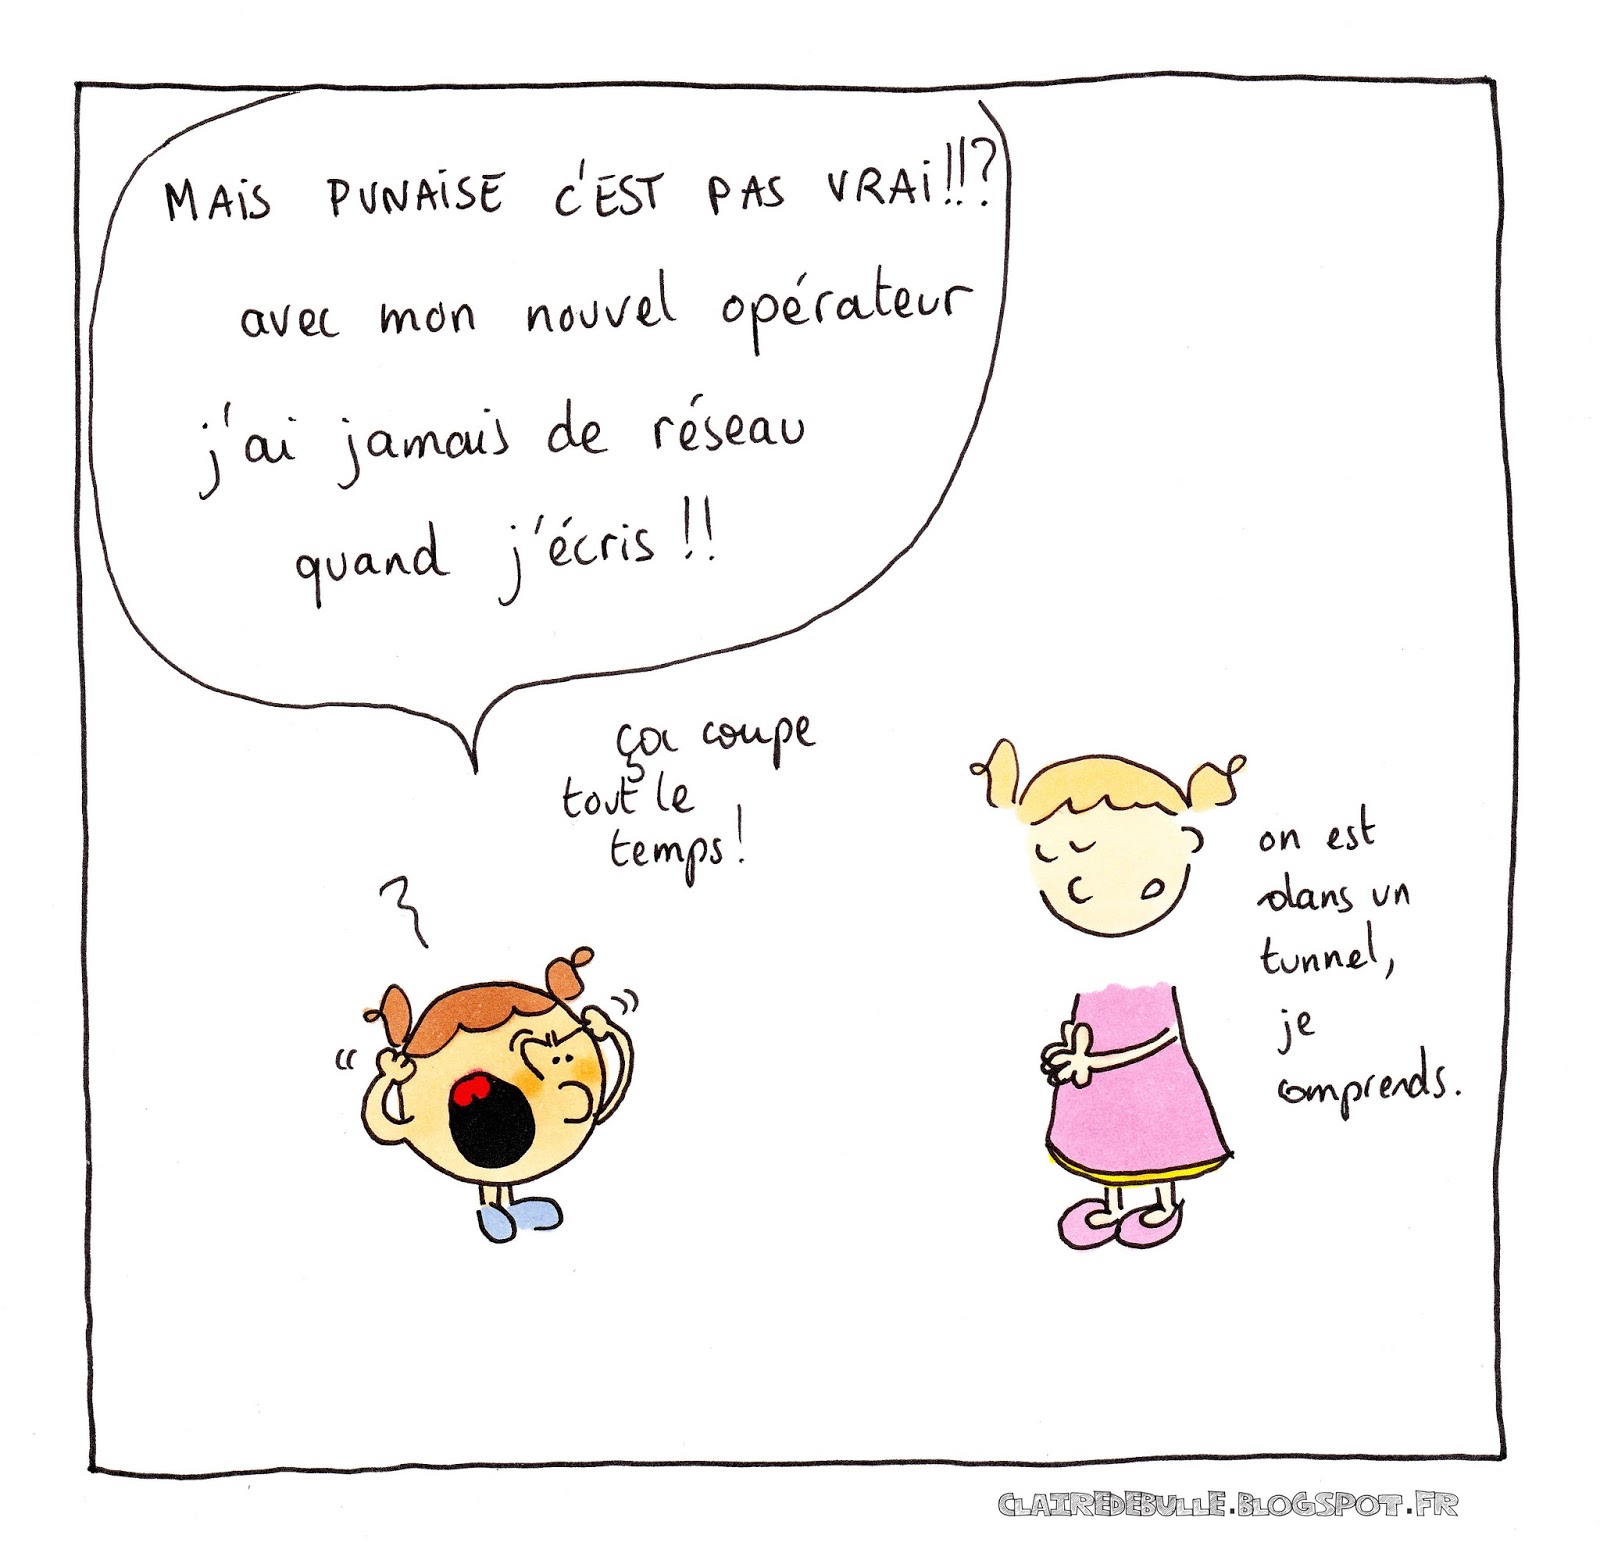 MAIS PUNAISE C'EST PAS VRAI!!?
avec mon nouvel opérateur
j'ai jamais de réseau
quand j'écris !!
ça coupe
tout le
temps!
on est
dans un
tunnel,
je
comprends.
CLAIREDEBULLE.BLOGSPOT.FR